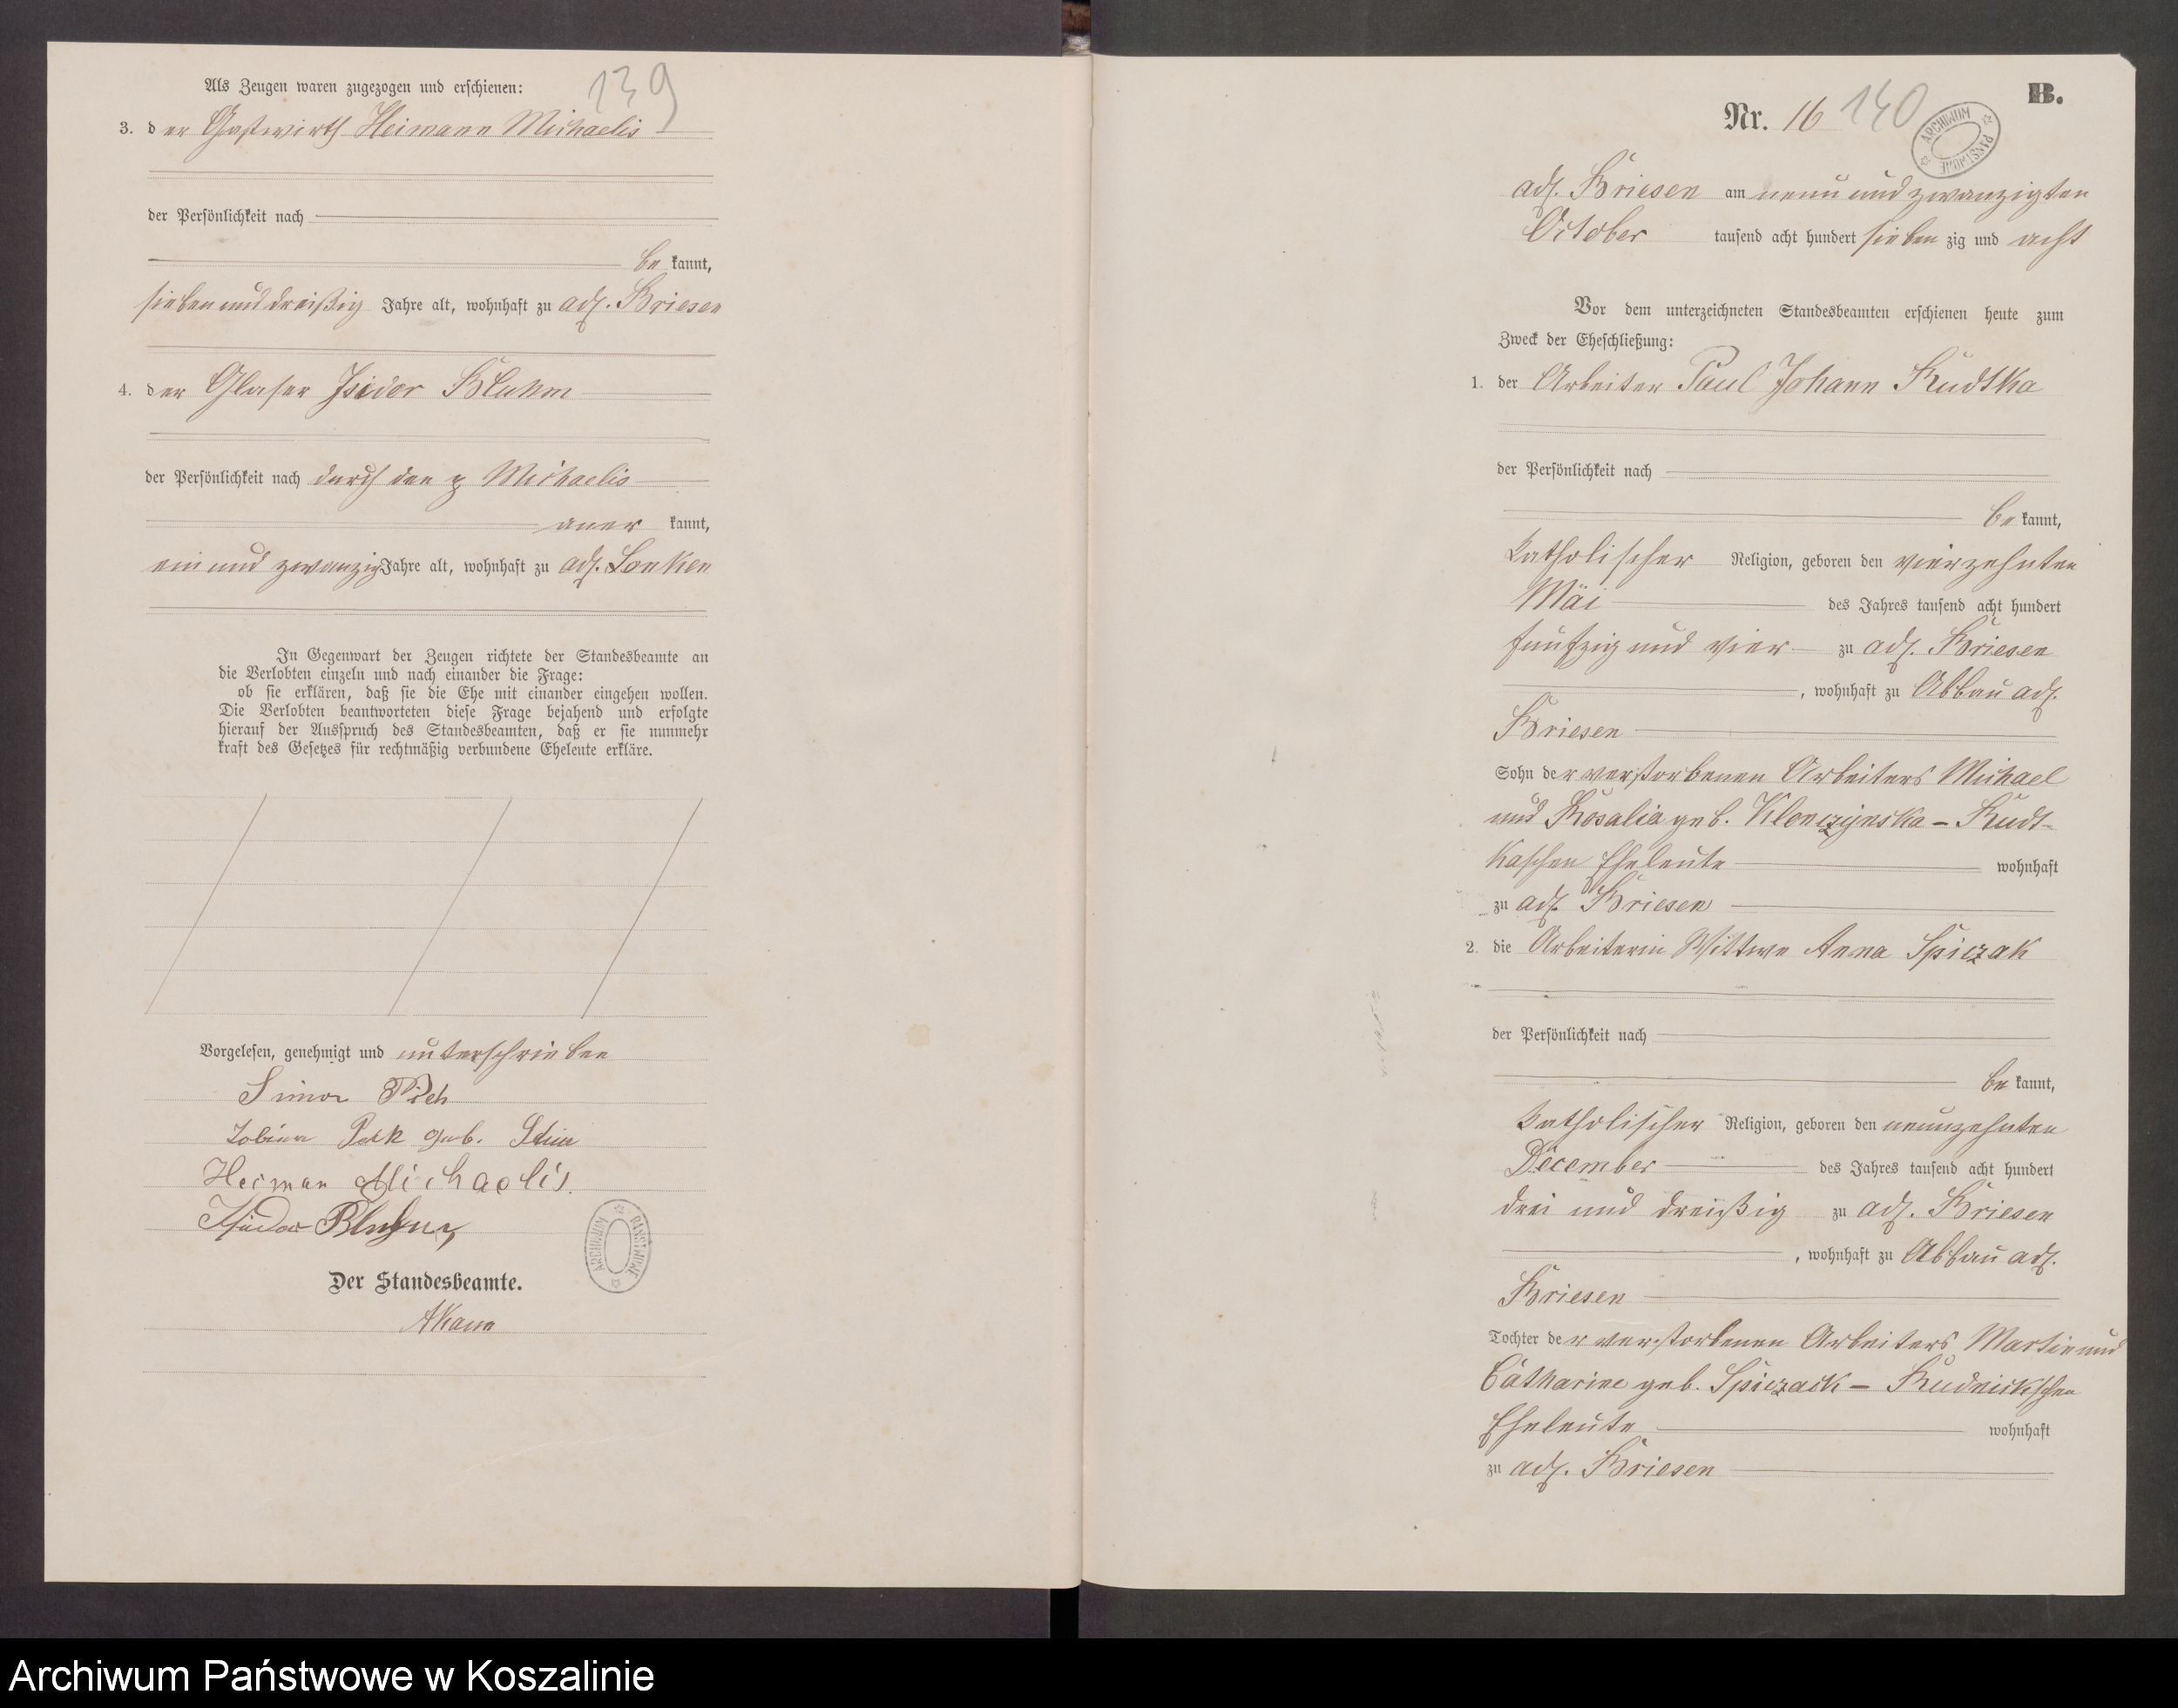 139
Als Zeugen waren zugezogen und erschienen:
3. der Gastwirth Heimann Michaelis
der Persönlichkeit nach
be kannt,
sieben und dreißig Jahre alt, wohnhaft zu adl. Briesen
4. der Glaser Isidor Bluhm
der Persönlichkeit nach durch den p Michaelis
aner kannt,
ein und zwanzig Jahre alt, wohnhaft zu adl. Lonken
In Gegenwart der Zeugen richtete der Standesbeamte an
die Verlobten einzeln und nach einander die Frage:
ob sie erklären, daß sie die Ehe mit einander eingehen wollen.
Die Verlobten beantworteten diese Frage bejahend und erfolgte
hierauf der Ausspruch des Standesbeamten, daß er sie nunmehr
kraft des Gesetzes für rechtmäßig verbundene Eheleute erkläre.
Vorgelesen, genehmigt und unterschrieben
Simon
geb.
Heiman Michaelis.
Isidor Bluhm
ARCHIWUM PAŃSTWOWE
Der Standesbeamte.
B.
Nr. 16 140
ARCHIWUM PAŃSTWOWE
adl. Briesen am neun und zwanzigten
October tausend acht hundert sieben zig und acht
Vor dem unterzeichneten Standesbeamten erschienen heute zum
Zweck der Eheschließung:
1. der Arbeiter Paul Johann Rudtka
der Persönlichkeit nach
be kannt,
katholischer Religion, geboren den vierzehnten
Mai des Jahres tausend acht hundert
funfzig und vier zu adl. Briesen
, wohnhaft zu Abbau adl.
Briesen
Sohn der verstorbenen Arbeiters Michael
und Rosalia geb. Klonczynska - Rudt-
kaschen Eheleute wohnhaft
zu adl. Briesen
2. die Arbeiterin Wittwe Anna Spiczak
der Persönlichkeit nach
be kannt,
katholischer Religion, geboren den neunzehnten
December des Jahres tausend acht hundert
drei und dreißig zu adl. Briesen
, wohnhaft zu Abbau adl.
Briesen
Tochter der verstorbenen Arbeiters Martin und
Catharine geb. Spiczack - Rudnickschen
Eheleute wohnhaft
zu adl. Briesen
Archiwum Państwowe w Koszalinie